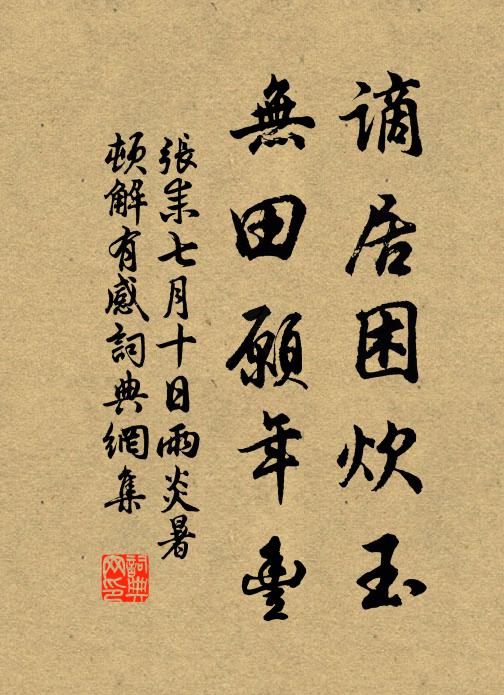 謫居困炊玉
無田願年豊
張耒七月十日雨炎暑
頓解有感詞典網集
詞典
网印